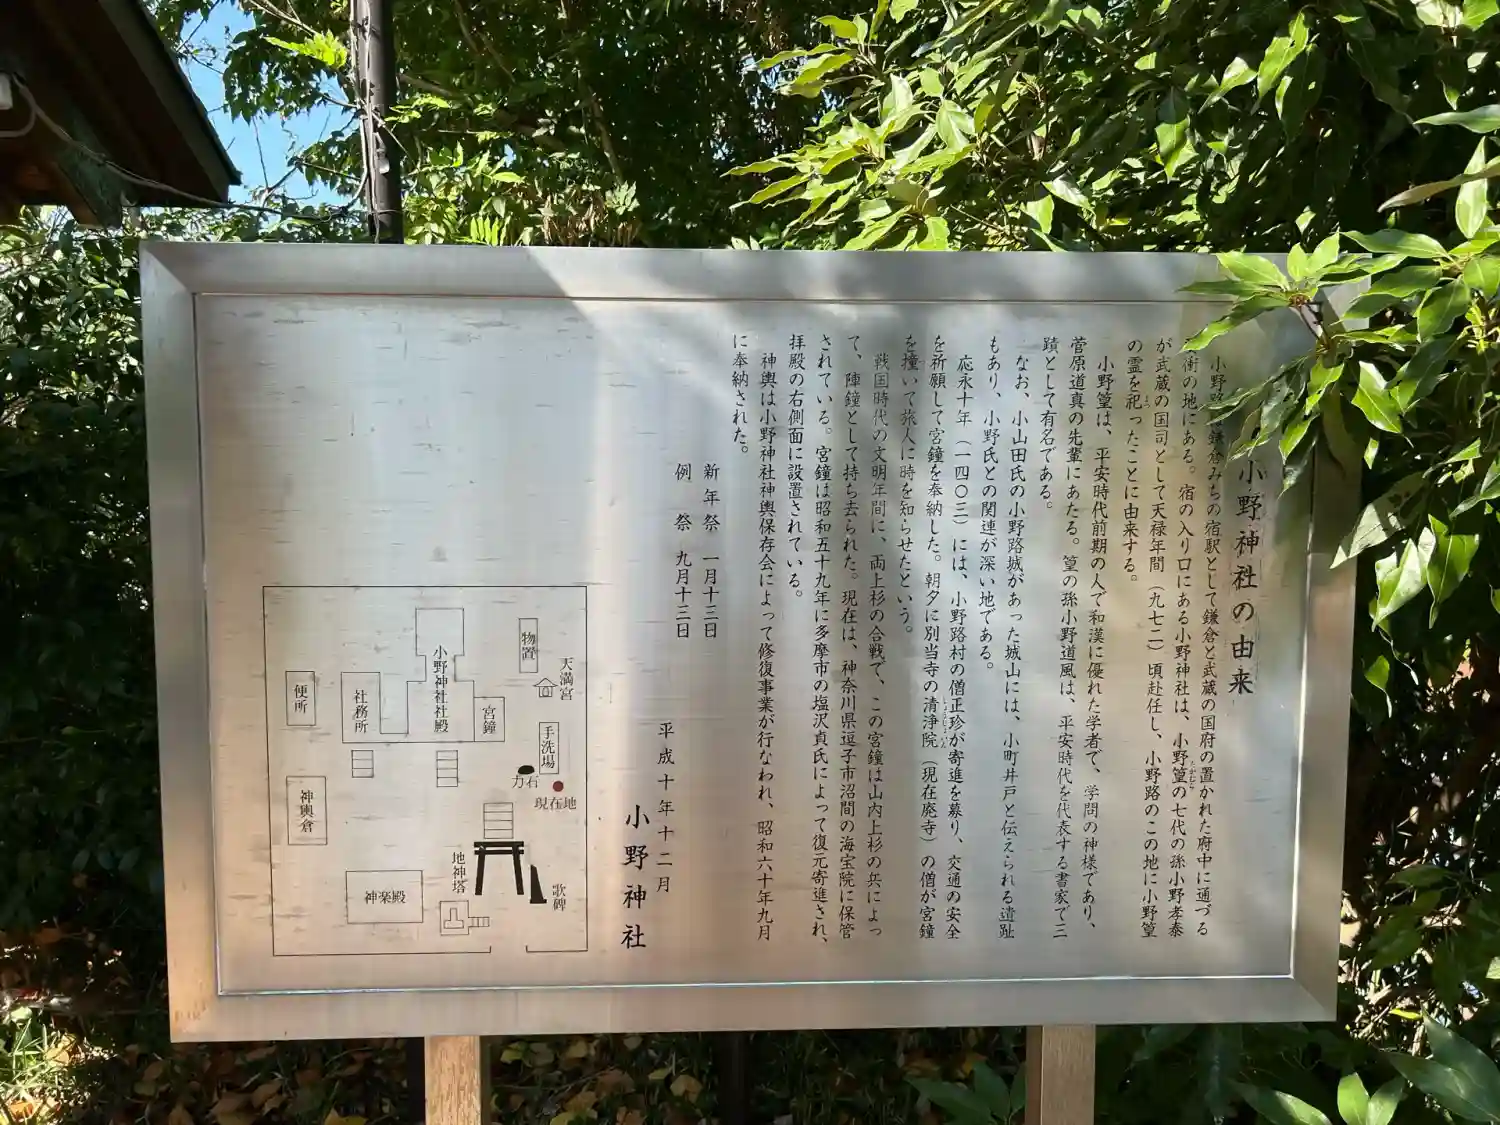 小野神社の由来
小野路は鎌倉みちの宿駅として鎌倉と武蔵の国府の置かれた府中に通づる
衝の地にある。宿の入り口にある小野神社は、小野篁の七代の孫小野孝泰
が武蔵の国司として天禄年間（九七二）頃赴任し、小野路のこの地に小野篁
の霊を祀ったことに由来する。
小野篁は、平安時代前期の人で和漢に優れた学者で、学問の神様であり、
菅原道真の先輩にあたる。篁の孫小野道風は、平安時代を代表する書家で三
蹟として有名である。
なお、小山田氏の小野路城があった城山には、小町井戸と伝えられる遺趾
もあり、小野氏との関連が深い地である。
応永十年（一四〇三）には、小野路村の僧正珍が寄進を募り、交通の安全
を祈願して宮鐘を奉納した。朝夕に別当寺の清浄院（現在廃寺）の僧が宮鐘
を撞いて旅人に時を知らせたという。
戦国時代の文明年間に、両上杉の合戦で、この宮鐘は山内上杉の兵によっ
て、陣鐘として持ち去られた。現在は、神奈川県逗子市沼間の海宝院に保管
されている。宮鐘は昭和五十九年に多摩市の塩沢貞氏によって復元寄進され、
拝殿の右側面に設置されている。
神輿は小野神社神輿保存会によって修復事業が行なわれ、昭和六十年九月
に奉納された。
新年祭 一月十三日
例 祭 九月十三日
平成十年十二月
小野神社
物置
天満宮
小野神社社殿
宮鐘
社務所
便所
手洗場
力石
現在地
神輿倉
地神塔
歌碑
神楽殿